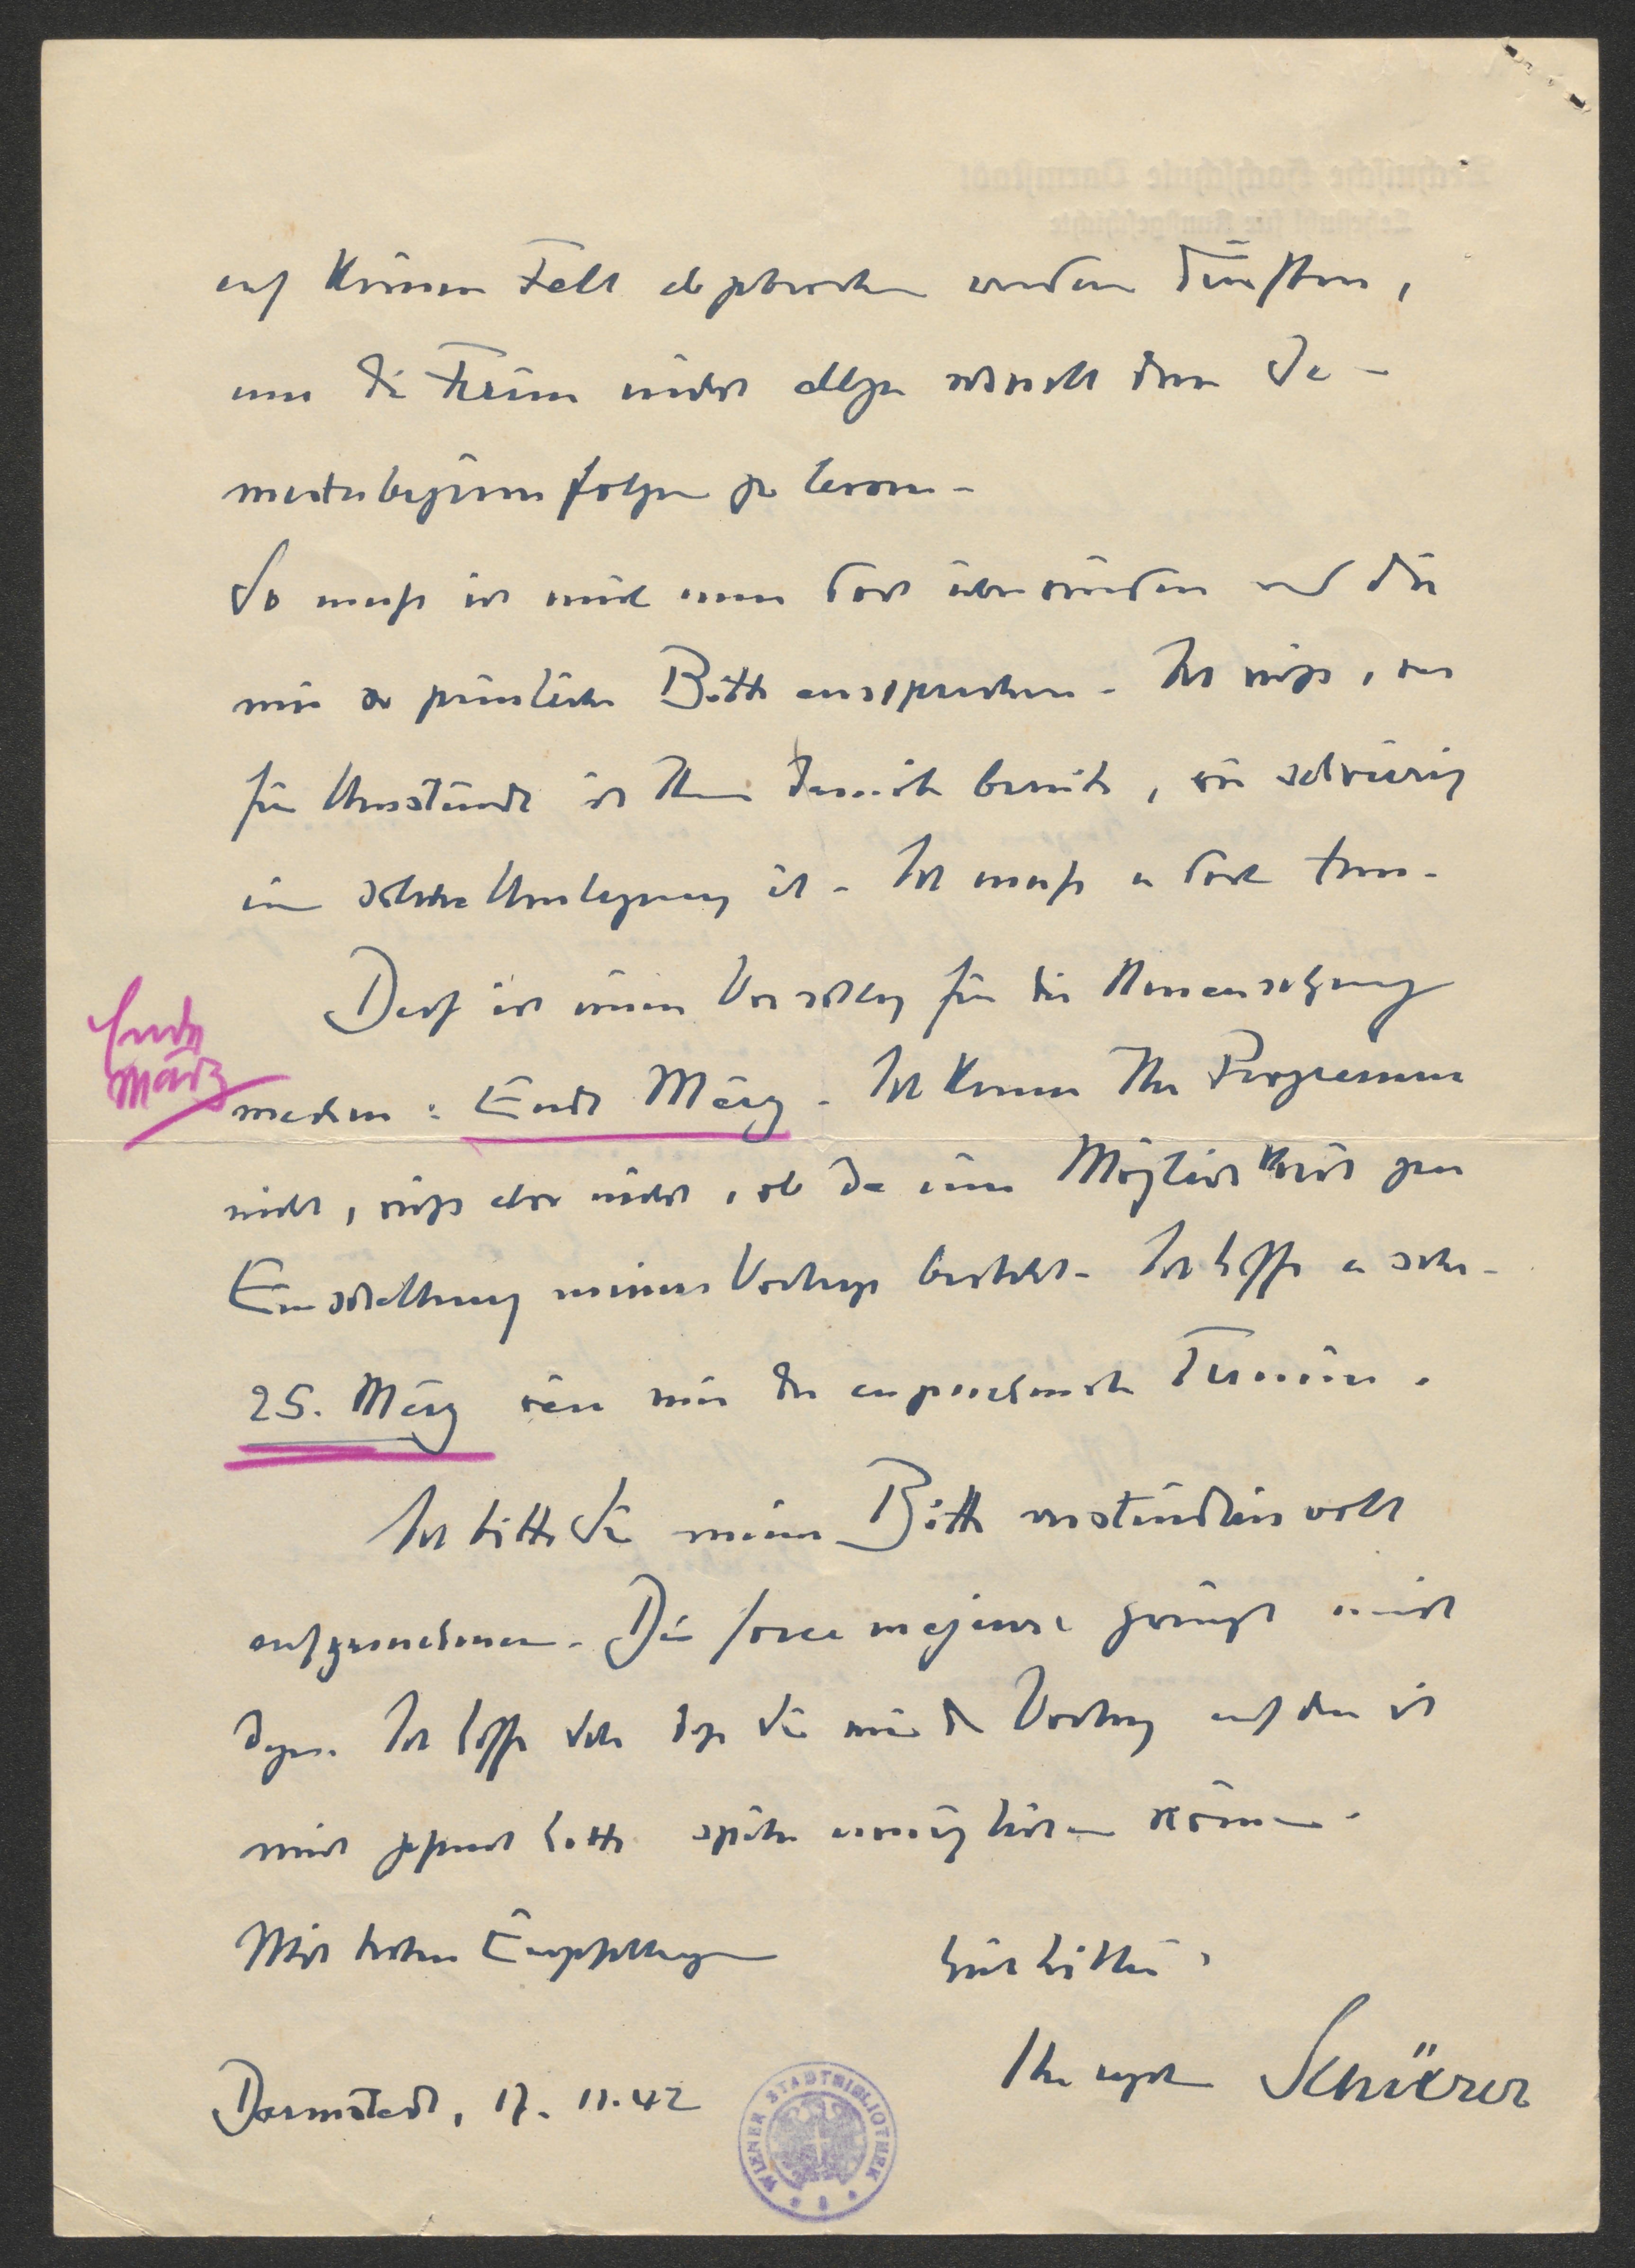 auf keinen Fall abgebrochen werden dürften,
um die Ferien nicht allzu schnell dem Se-
mesterbeginn folgen zu lassen.
So muss ich mich nun doch überwinden und die
mir so peinliche Bitte aussprechen. Ich weiss, was
für Umstände ich Ihnen damit bereite, wie schwierig
eine solche Umlegung ist. Ich muss es doch tun.
Darf ich einen Vorschlag für die Neuansetzung
Ende
März
machen: Ende März. Ich kenne Ihr Programm
nicht, weiss aber nicht, ob da eine Möglichkeit zur
Einschaltung meines Vortrags besteht. Ich hoffe es sehr.
25. März wäre mir der angenehmste Termin.
Ich bitte Sie meine Bitte verständnisvoll
aufzunehmen. Die force majeure zwingt mich
dazu. Ich hoffe sehr dass Sie mir den Vortrag auf den ich
mich gefreut hatte später ermöglichen können.
Mit besten Empfehlungen
Heil Hitler!
Ihr ergeb. Schürer
Darmstadt, 17. 11. 42
WIENER STADTBIBLIOTHEK
Technische Hochschule Darmstadt
Lehrstuhl für Kunstgeschichte